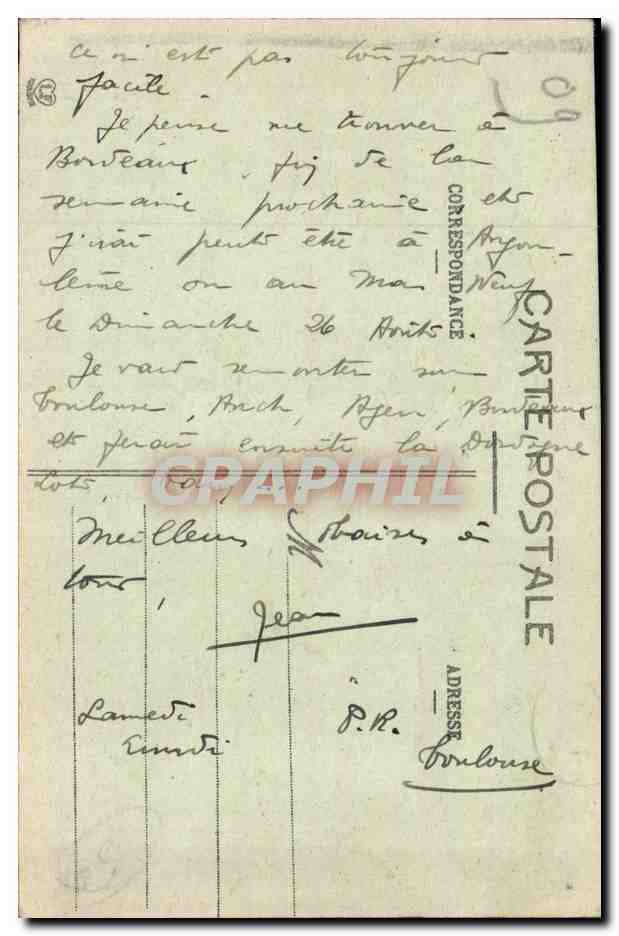 ce n'est pas toujours
facile.
Je pense me trouver à
Bordeaux, fin de la
semaine prochaine et
j'irai peut être à Angou-
lême ou au Mas Neuf
le Dimanche 26 Août.
Je vais remonter sur
Toulouse, Auch, Agen, Bordeaux
et ferai ensuite la Dordogne
Lot,
Meilleurs baisers à
tous,
Jean
Samedi
Lundi
P.R.
Toulouse
CORRESPONDANCE
CARTE POSTALE
ADRESSE
09
CPAPHIL